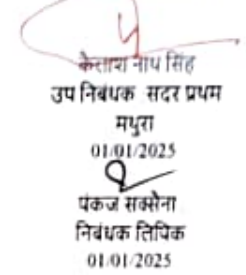 कैलाश नाथ सिंह
उप निबंधक सदर प्रथम
मथुरा
01/01/2025
पंकज सक्सैना
निबंधक लिपिक
01/01/2025